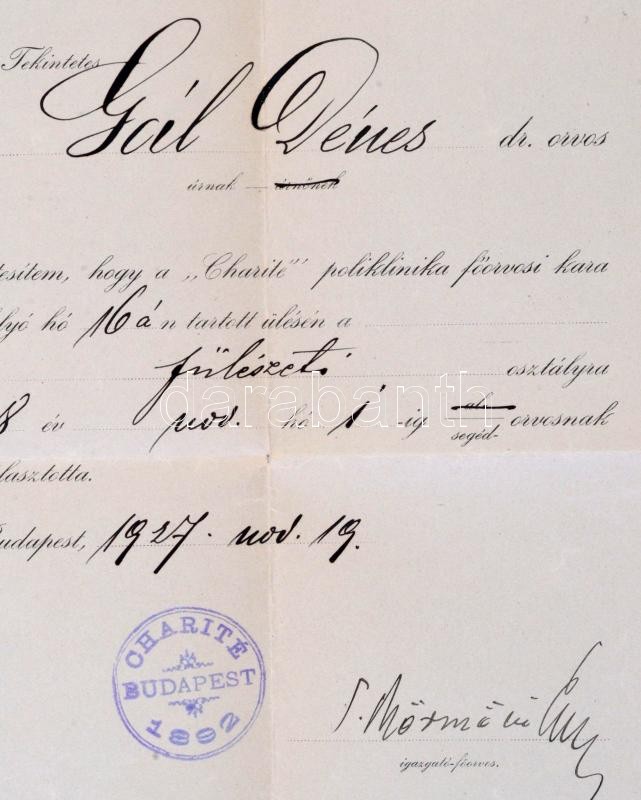 Tekintetes
Gál Dénes dr. orvos
úrnak úrnőnek
tesítem, hogy a „Charité” poliklinika főorvosi kara
lyó hó 16 án tartott ülésén a
fülészeti osztályra
8 év nov. hó 1 -ig al- segéd- orvosnak
lasztotta.
Budapest, 1927. nov. 19.
CHARITÉ
BUDAPEST
1892
igazgató-főorvos.
darabanth